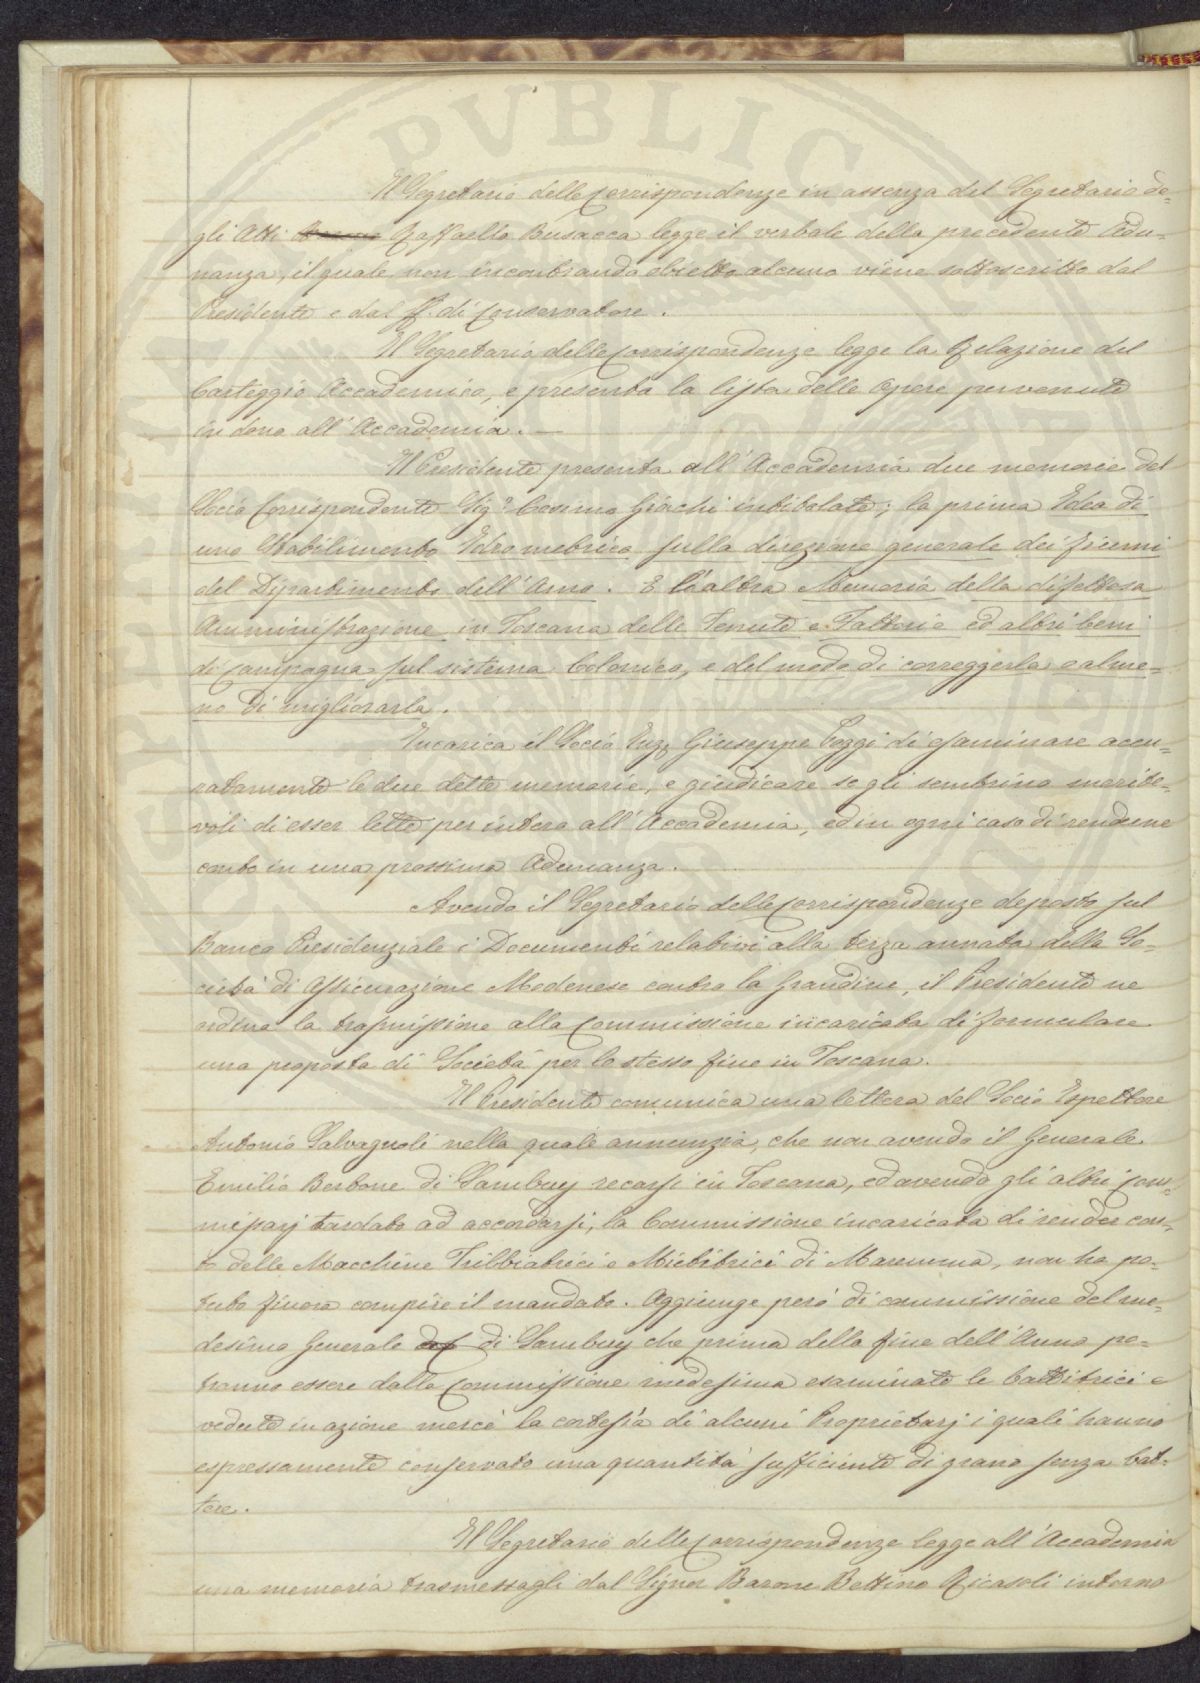 Il Segretario delle Corrispondenze in assenza del Segretario de-
gli Atti Raffaello Busacca legge il verbale della precedente Adu-
nanza, il quale non incontrando obietto alcuno viene sottoscritto dal
Presidente e dal ff. di Conservatore.
Il Segretario delle Corrispondenze legge la Relazione del
Carteggio Accademico, e presenta la lista delle Opere pervenute
in dono all'Accademia. —
Il Presidente presenta all'Accademia due memorie del
Socio Corrispondente Sig.r Cosimo Giachi intitolate; la prima Idea di
uno Stabilimento Idrometrico sulla direzione generale dei fiumi
del Dipartimento dell'Arno. E l'altra Memoria della difettosa
Amministrazione in Toscana delle Tenute e Fattorie ed altri beni
di campagna sul sistema Colonico, e del modo di correggerla o alme-
no di migliorarla.
Incarica il Socio Ing. Giuseppe Poggi di esaminare accu-
ratamente le due dette memorie, e giudicare se gli sembrino merite-
voli di esser lette per intero all'Accademia, ed in ogni caso di renderne
conto in una prossima Adunanza.
Avendo il Segretario delle Corrispondenze deposto sul
Banco Presidenziale i Documenti relativi alla terza annata della So-
cietà di Assicurazione Modenese contro la Grandine, il Presidente ne
ordina la trasmissione alla Commissione incaricata di formulare
una proposta di Società per lo stesso fine in Toscana.
Il Presidente comunica una lettera del Socio Ispettore
Antonio Salvagnoli nella quale annunzia, che non avendo il Generale
Emilio Berbone di Sambuy recarsi in Toscana, ed avendo gli altri Com-
missarj tardato ad accordarsi, la Commissione incaricata di render con-
to delle Macchine Tribbiatrici e Mietitrici di Maremma, non ha po-
tuto finora compire il mandato. Aggiunge però di commissione del me-
desimo Generale del di Sambuy che prima della fine dell'Anno po-
tranno essere dalla Commissione medesima esaminate le battitrici e
vedute in azione mercè la cortesia di alcuni Proprietarj i quali hanno
espressamente conservato una quantità sufficiente di grano senza bat-
tere.
Il Segretario delle Corrispondenze legge all'Accademia
una memoria trasmessagli dal Signor Barone Bettino Ricasoli intorno